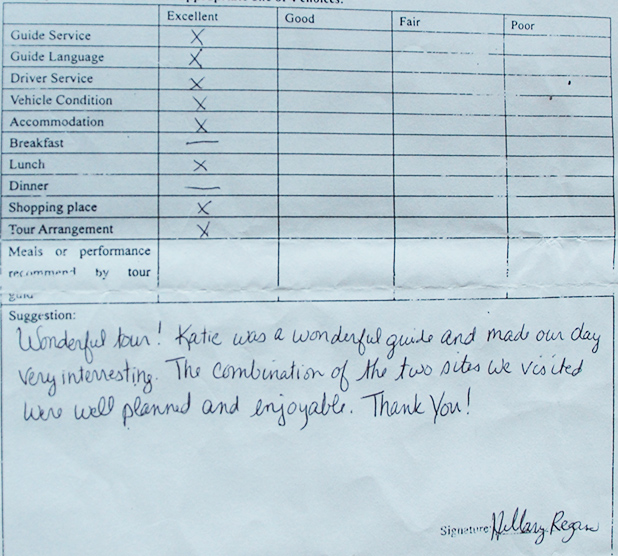 Excellent Good Fair Poor
Guide Service X
Guide Language X
Driver Service X
Vehicle Condition X
Accommodation X
Breakfast —
Lunch X
Dinner —
Shopping place X
Tour Arrangement X
Meals or performance
recommend by tour
Suggestion:
Wonderful tour! Katie was a wonderful guide and made our day
very interresting. The combination of the two sites we visited
were well planned and enjoyable. Thank You!
Signature: Hillary Regan